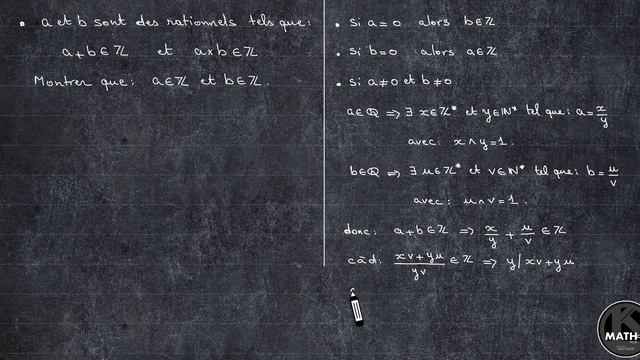 • a et b sont des rationnels tels que:
a+b∈ℤ et a×b∈ℤ
Montrer que: a∈ℤ et b∈ℤ.
• si a=0 alors b∈ℤ
• si b=0 alors a∈ℤ
• si a≠0 et b≠0.
a∈ℚ ⟹ ∃ x∈ℤ* et y∈ℕ* tel que: a=x/y
avec: x∧y=1.
b∈ℚ ⟹ ∃ u∈ℤ* et v∈ℕ* tel que: b=u/v
avec: u∧v=1.
donc: a+b∈ℤ ⟹ x/y + u/v ∈ℤ
càd: (xv+yu)/yv ∈ℤ ⟹ y/xv+yu
K
MATH